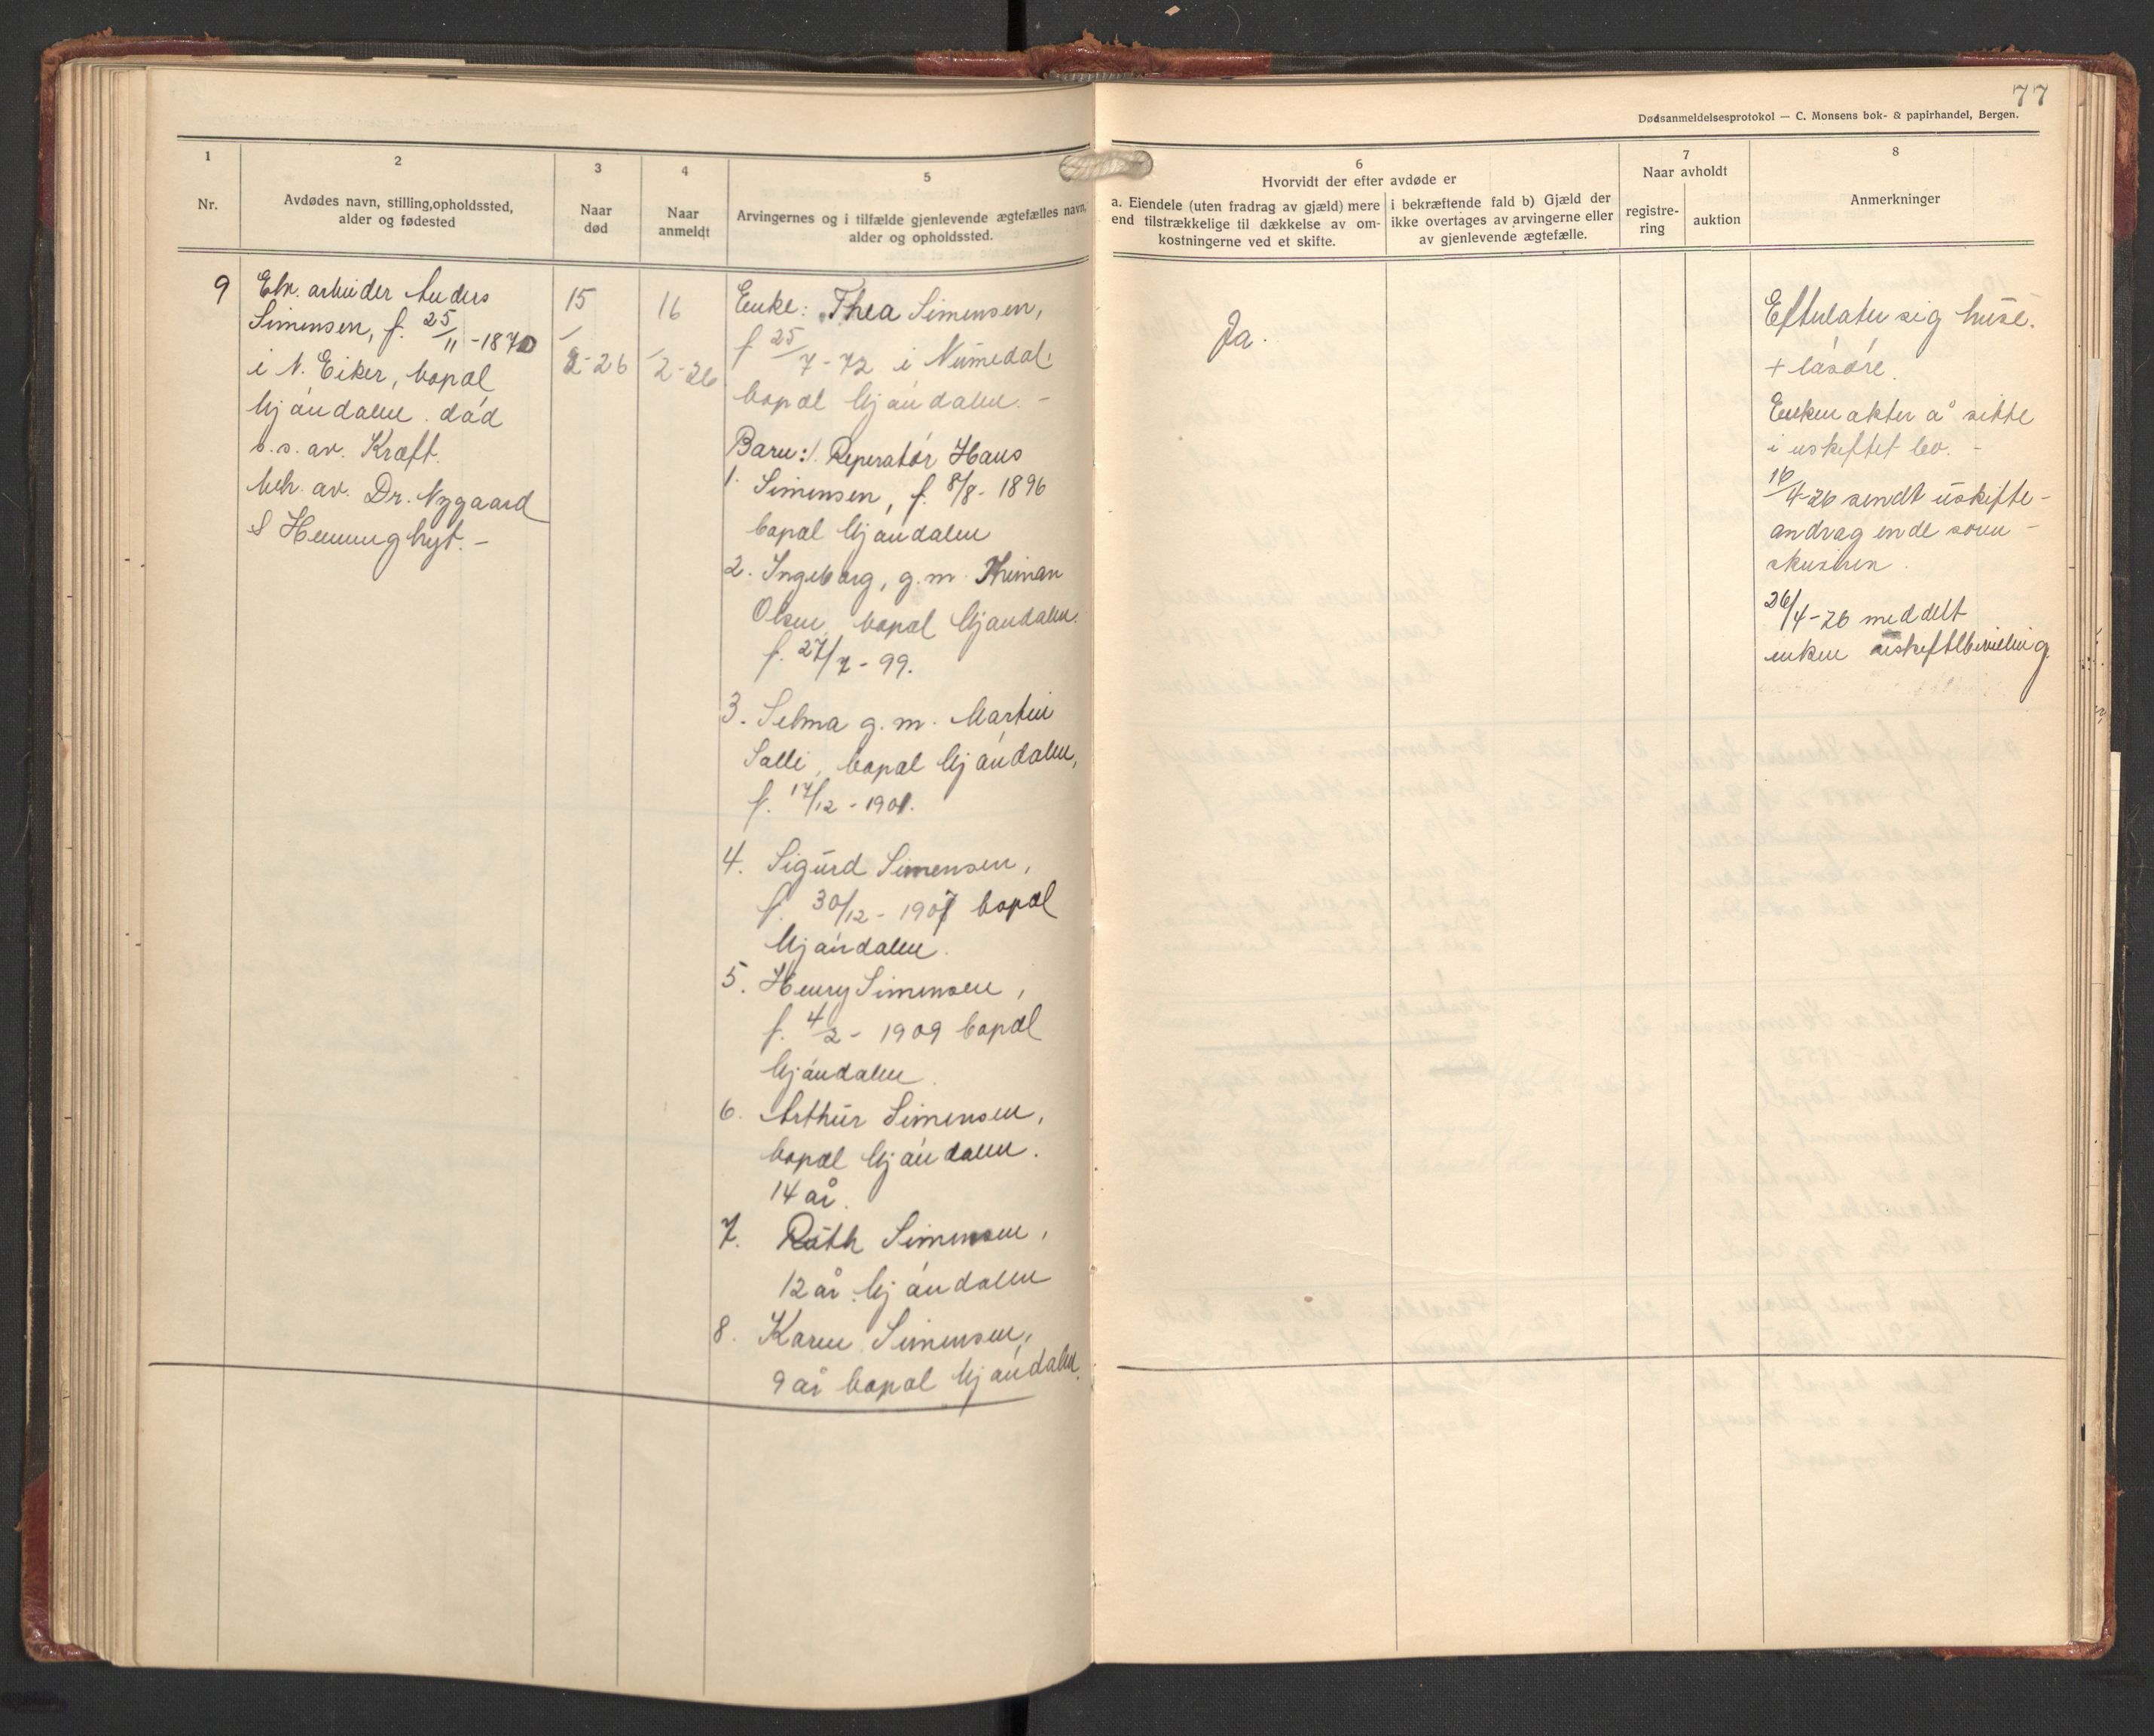 77
Dødsanmeldelsesprotokol — C. Monsens bok- & papirhandel, Bergen.
1
Nr.
2
Avdødes navn, stilling, opholdssted,
alder og fødested
3
Naar
død
4
Naar
anmeldt
5
Arvingernes og i tilfælde gjenlevende ægtefælles navn,
alder og opholdssted.
6
Hvorvidt der efter avdøde er
a. Eiendele (uten fradrag av gjæld) mere
end tilstrækkelige til dækkelse av om-
kostningerne ved et skifte.
i bekræftende fald b) Gjæld der
ikke overtages av arvingerne eller
av gjenlevende ægtefælle.
7
Naar avholdt
registre-
ring
auktion
8
Anmerkninger
9
arbeider Anders
Simensen, f. 25/11-1870
i N. Eiker, bopæl
Mjøndalen. død
s. s. av. Kræft.
beh. av. Dr. Nygaard
15/2-26
16/2-26
Enke: Thea Simensen,
f 25/7-72 i Numedal.
bopæl Mjøndalen. -
Barn: Reperatør Hans
1. Simensen, f. 8/8-1896
bopæl Mjøndalen
2. Ingeborg, g.m.
Olsen, bopæl Mjøndalen.
f. 27/7-99.
3. Selma g.m. Martin
Salli, bopæl Mjøndalen,
f. 17/12-1901.
4. Sigurd Simensen,
f. 30/12-1907 bopæl
Mjøndalen.
5. Henry Simensen,
f. 4/2-1909 bopæl
Mjøndalen.
6. Arthur Simensen,
bopæl Mjøndalen.
14 år.
7. Ruth Simensen,
12 år. Mjøndalen
8. Karen Simensen,
9 år bopæl Mjøndalen.
Ja.
Efterlater sig huse.
+ løsøre.
Enken akter å sitte
i uskiftet bo. -
16/4-26 sendt uskifte-
andragende soren-
skriveren.
26/4-26 meddelt
enken uskiftebevilling